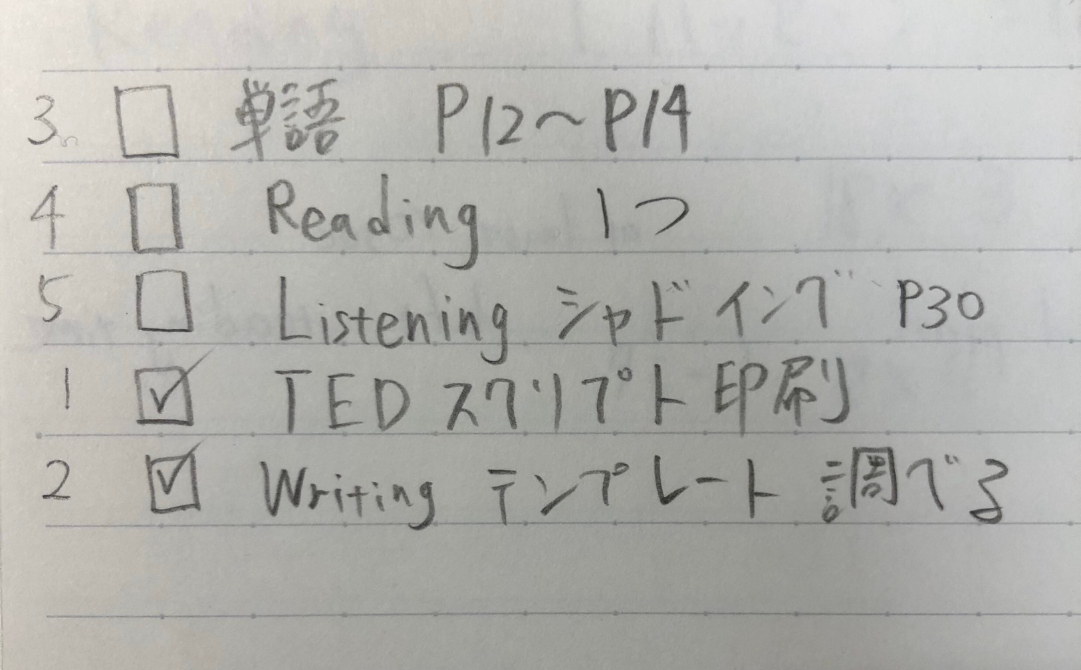 3. □ 単語 P12～P14
4 □ Reading 1つ
5 □ Listening シャドイング P30
1 ☑ TED スクリプト 印刷
2 ☑ Writing テンプレート 調べる